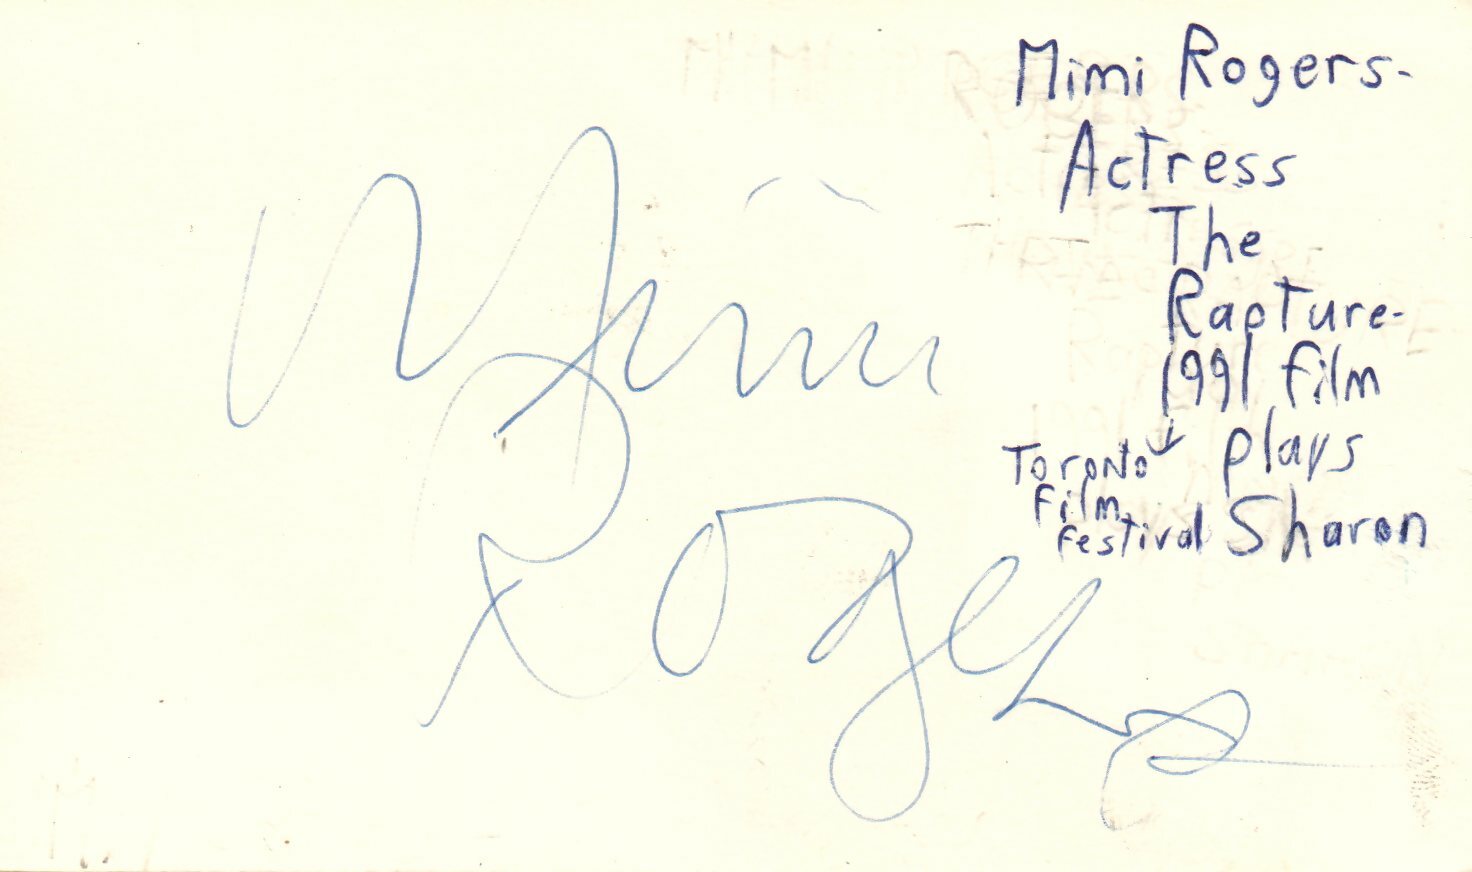 Mimi Rogers-
Actress
The
Rapture-
1991 film
plays
Sharon
Toronto
Film
Festival
Mimi
Rogers